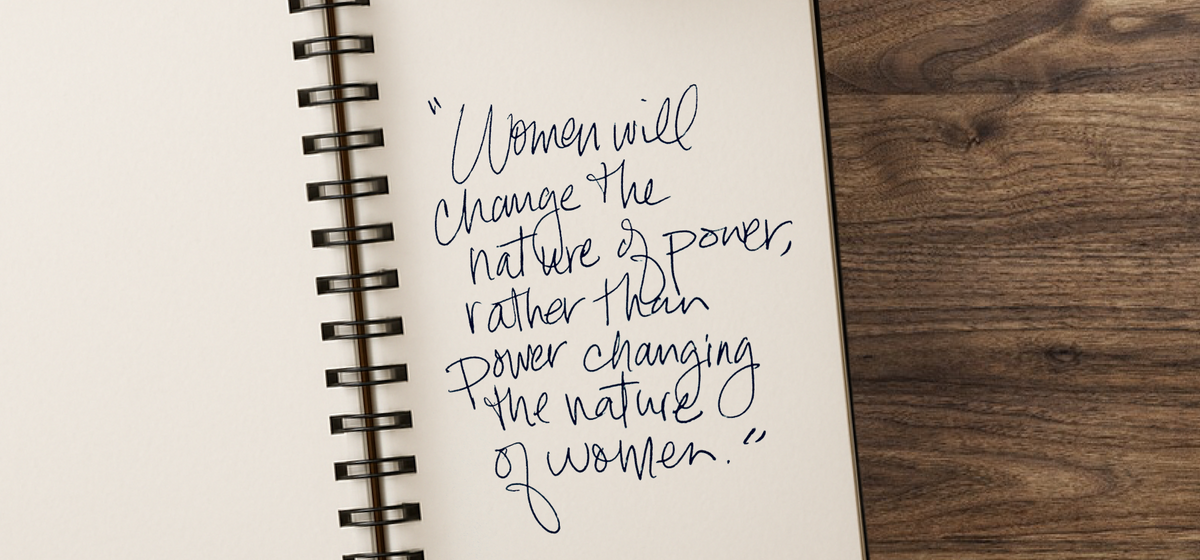 "Women will
change the
nature of power,
rather than
power changing
the nature
of women."